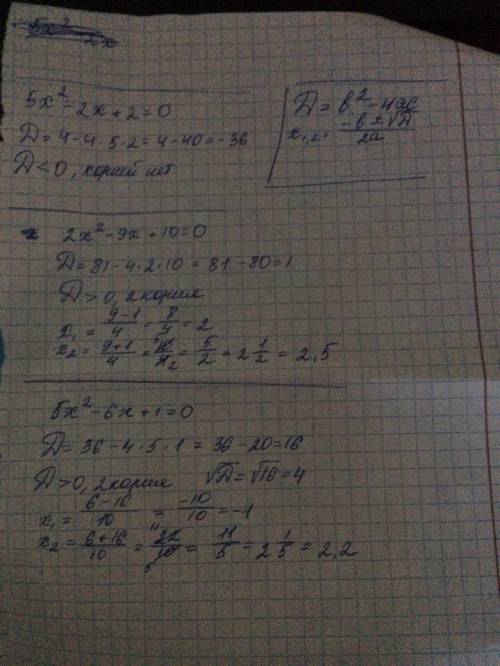 5x² - 2x + 2 = 0
D = 4 - 4·5·2 = 4 - 40 = -36
D < 0, корней нет
D = b² - 4ac
x₁,₂ = (-b ± √D)/2a
2x² - 9x + 10 = 0
D = 81 - 4·2·10 = 81 - 80 = 1
D > 0, 2 корня
x₁ = (9-1)/4 = 8/4 = 2
x₂ = (9+1)/4 = 10/4 2 = 5/2 = 2 1/2 = 2,5
5x² - 6x + 1 = 0
D = 36 - 4·5·1 = 36 - 20 = 16
D > 0, 2 корня √D = √16 = 4
x₁ = (6-16)/10 = -10/10 = -1
x₂ = (6+16)/10 = 11 22/10 5 = 11/5 = 2 1/5 = 2,2